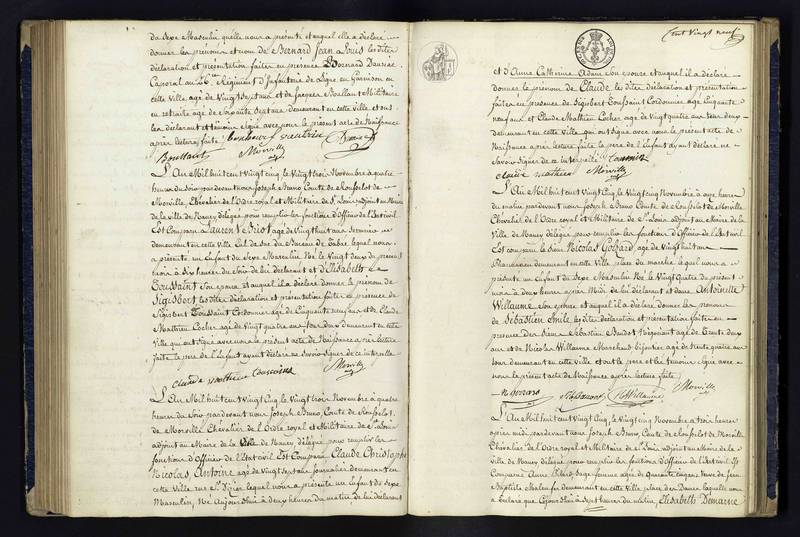 du Sexe Masculin quelle nous a présenté et auquel elle a déclaré
donner les prénoms et nom de Bernard Jean Louis les dites
déclaration et présentation faites en présence de Bernard Dauzac
Caporal au 26e Régiment d'Infanterie de Ligne en Garnison en
cette Ville agé de Vingt sept ans et de Jacques Militaire
en retraite agé de Soixante Sept ans demeurant en cette ville et ont
les déclarant et témoins signé avec nous le présent acte de Naissance
après lecture faite
Morville
L'An Mil huit cent Vingt Cinq le Vingt trois Novembre à quatre
heures du soir pardevant nous Joseph Bruno Comte de Rousselot de
Morville, Chevalier de l'Ordre royal et Militaire de St Louis adjoint au Maire
de la ville de Nancy délégué pour remplir les fonctions d'Officier de l'Etat civil
Est Comparu Laurent agé de Vingt huit ans
demeurant en cette Ville Cul de Sac du Bureau de Tabac lequel nous
a présenté un Enfant du Sexe Masculin Né le Vingt deux du présent
mois à dix heures du soir de lui déclarant et d'Elisabeth
Toussaint Son epouse et auquel il a déclaré donner le prénom de
Sigisbert les dites déclaration et présentation faites en présence de
Sigisbert Toussaint Cordonnier agé de Cinquante neuf ans et de Claude
Mathieu Cocher agé de Vingt quatre ans tous deux demeurant en cette
Ville qui ont signé avec nous le présent acte de Naissance après lecture
faite le père de l'Enfant ayant déclaré ne Savoir Signer de ce interpellé
claude mathieu toussaint Morville
L'An Mil huit cent Vingt Cinq le Vingt trois Novembre à quatre
heures du Soir pardevant nous Joseph Bruno, Comte de Rousselot
de Morville Chevalier de l'Ordre royal et Militaire de St Louis
adjoint au Maire de la Ville de Nancy délégué pour remplir les
fonctions d'Officier de l'Etat civil Est Comparu Claude Christophe
Nicolas Antoine agé de Vingt Sept ans Journalier demeurant en
cette Ville rue St Dizier lequel nous a présenté un Enfant du Sexe
Masculin, Né Aujourd'hui à deux heures du matin de lui déclarant
Cent Vingt neuf
et d'Anne Catherine Adam Son epouse et auquel il a déclaré
donner le prénom de Claude les dites déclaration et présentation
faites en présence de Sigisbert Toussaint Cordonnier agé de Cinquante
neuf ans et Claude Mathieu Cocher agé de Vingt quatre ans tous deux
demeurant en cette Ville qui ont signé avec nous le présent acte de
Naissance après lecture faite le père de l'Enfant ayant déclaré ne
Savoir Signer de ce interpellé toussaint
claude mathieu Morville
L'An Mil huit cent Vingt Cinq le Vingt cinq Novembre à onze heures
du matin pardevant nous Joseph Bruno Comte de Rousselot de Morville
Chevalier de l'Ordre royal et Militaire de St Louis adjoint au Maire de la
Ville de Nancy délégué pour remplir les fonctions d'Officier de l'Etat civil
Est comparu le Sieur Nicolas agé de Vingt huit ans
Pharmacien demeurant en cette Ville place du marché lequel nous a
présenté un Enfant du Sexe Masculin Né le Vingt Quatre du présent
mois à deux heures après Midi de lui déclarant et dame Antoinette
Willaume Son epouse et auquel il a déclaré donner les prénoms
de Sébastien Emile les dites déclaration et présentation faites en
présence des Sieurs Sébastien Négociant agé de trente deux
ans et de Nicolas Willaume Marchand bijoutier agé de trente quatre ans
tous demeurant en cette ville et ont le père et les témoins signé avec
nous le présent acte de Naissance après lecture faite
Nt Willaume Morville
L'An Mil huit cent Vingt Cinq, le Vingt cinq Novembre à trois heures
après midi pardevant nous Joseph Bruno, Comte de Rousselot de Morville
Chevalier de l'Ordre royal et Militaire de St Louis adjoint au Maire de la
Ville de Nancy délégué pour remplir les fonctions d'Officier de l'Etat civil Est
Comparue Anne Sage femme agée de Quarante Cinq ans Veuve de Jean
Baptiste demeurant en cette Ville place des Dames laquelle nous
a déclaré que Cejourd'hui à Sept heures du matin, Elisabeth Demarne